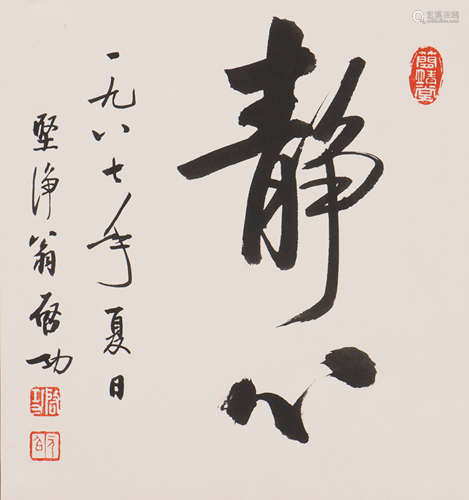 静心
一九八七年夏日
坚净翁启功